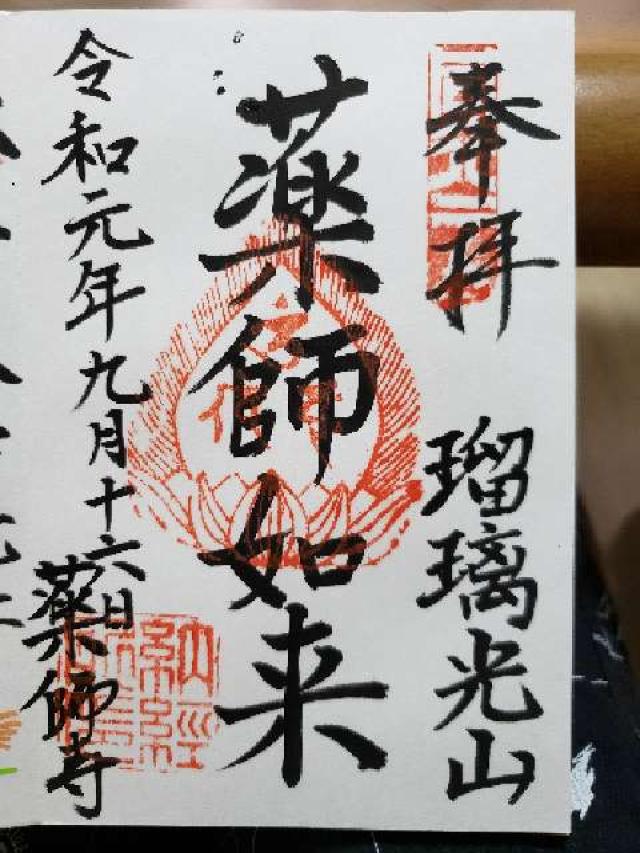 奉拝
瑠璃光山
薬師如来
令和元年九月十六日
薬師寺